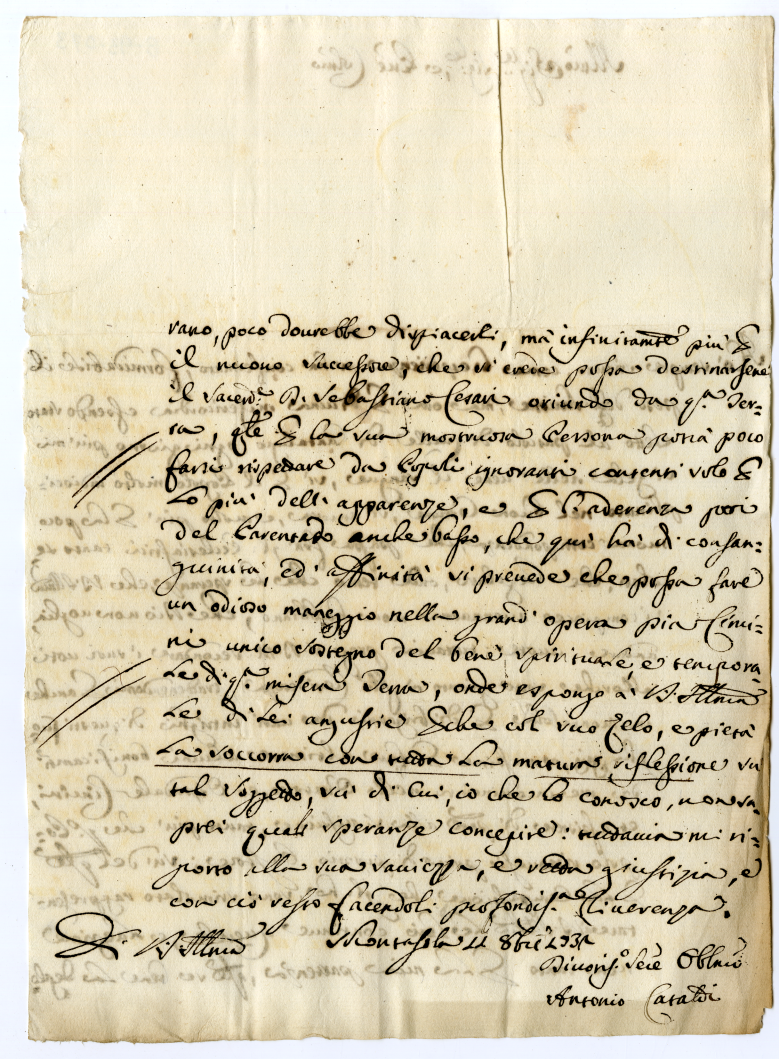 rano, poco dourebbe dispiacerli, mà infinitamte più
il nuouo successore, che si crede possa destinarsene
il Sacerd.e D. Sebastiano Cesari oriundo da q.ta Ter-
ra, q.le la sua mostruosa Persona potrà poco
farsi rispettare da Popoli ignoranti contenti solo
lo più dell'apparenze, e l'aderenza poi
del Parentado anche basso, che quì hà di consan-
guinità, ed affinità si preuede che possa fare
un odioso maneggio nella grand'opera pia Cimi-
ni unico sostegno del bene spirituale, e tempora-
le di q.ta misera Terra, onde espongo à V. Illma
le di lei angustie che col suo Zelo, e pietà
la soccorra con tutta la matura riflessione su
tal soggetto, di cui, io che lo conosco, non sa-
prei quali speranze concepire: tuttauia mi ri-
porto alla sua sauiezza, e retta giustizia, e
con ciò resto facendoli profondis.ma riuerenza.
Di V. Illma Montasola 8bre
Diuotis.o Seru Obbmo
Antonio Cataldi